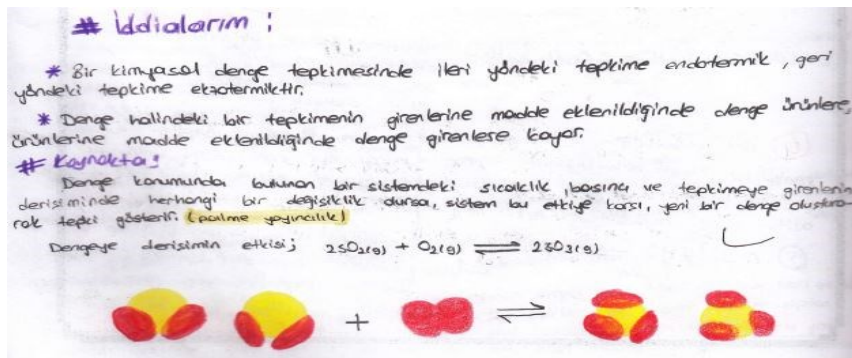 # İddialarım :
* Bir kimyasal denge tepkimesinde ileri yöndeki tepkime endotermik, geri
yöndeki tepkime ekzotermiktir.
* Denge halindeki bir tepkimenin girenlerine madde eklenildiğinde denge ürünlere,
ürünlerine madde eklenildiğinde denge girenlere kayar.
# Kaynakta:
Denge konumunda bulunan bir sistemdeki sıcaklık, basınç ve tepkimeye girenlerin
derişiminde herhangi bir değişiklik olursa, sistem bu etkiye karşı, yeni bir denge oluştura-
rak tepki gösterir. (palme yayıncılık)
Dengeye derişimin etkisi; 2SO2(g) + O2(g) ⇌ 2SO3(g)
+ ⇌